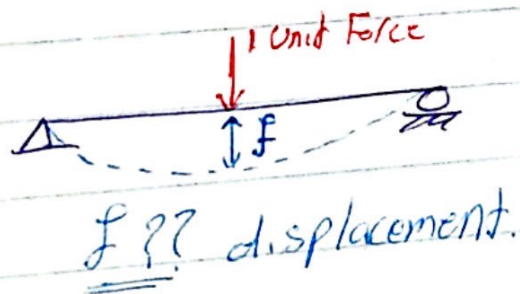 1 Unit Force
f
f ?? displacement.